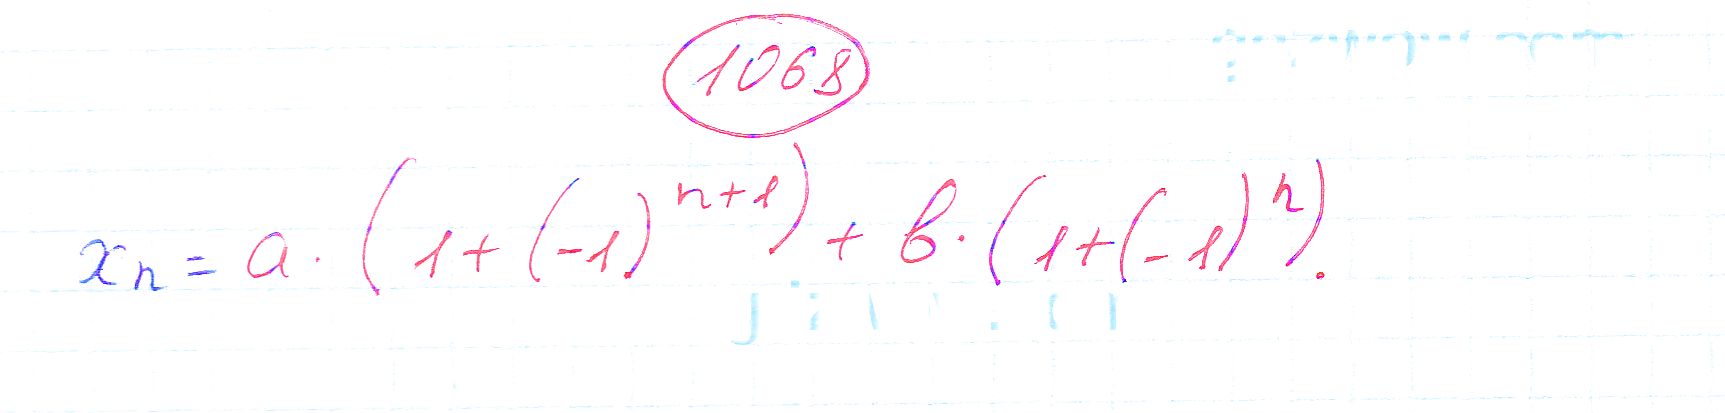 1068
xₙ = a · (1 + (-1)ⁿ⁺¹) + b · (1 + (-1)ⁿ).